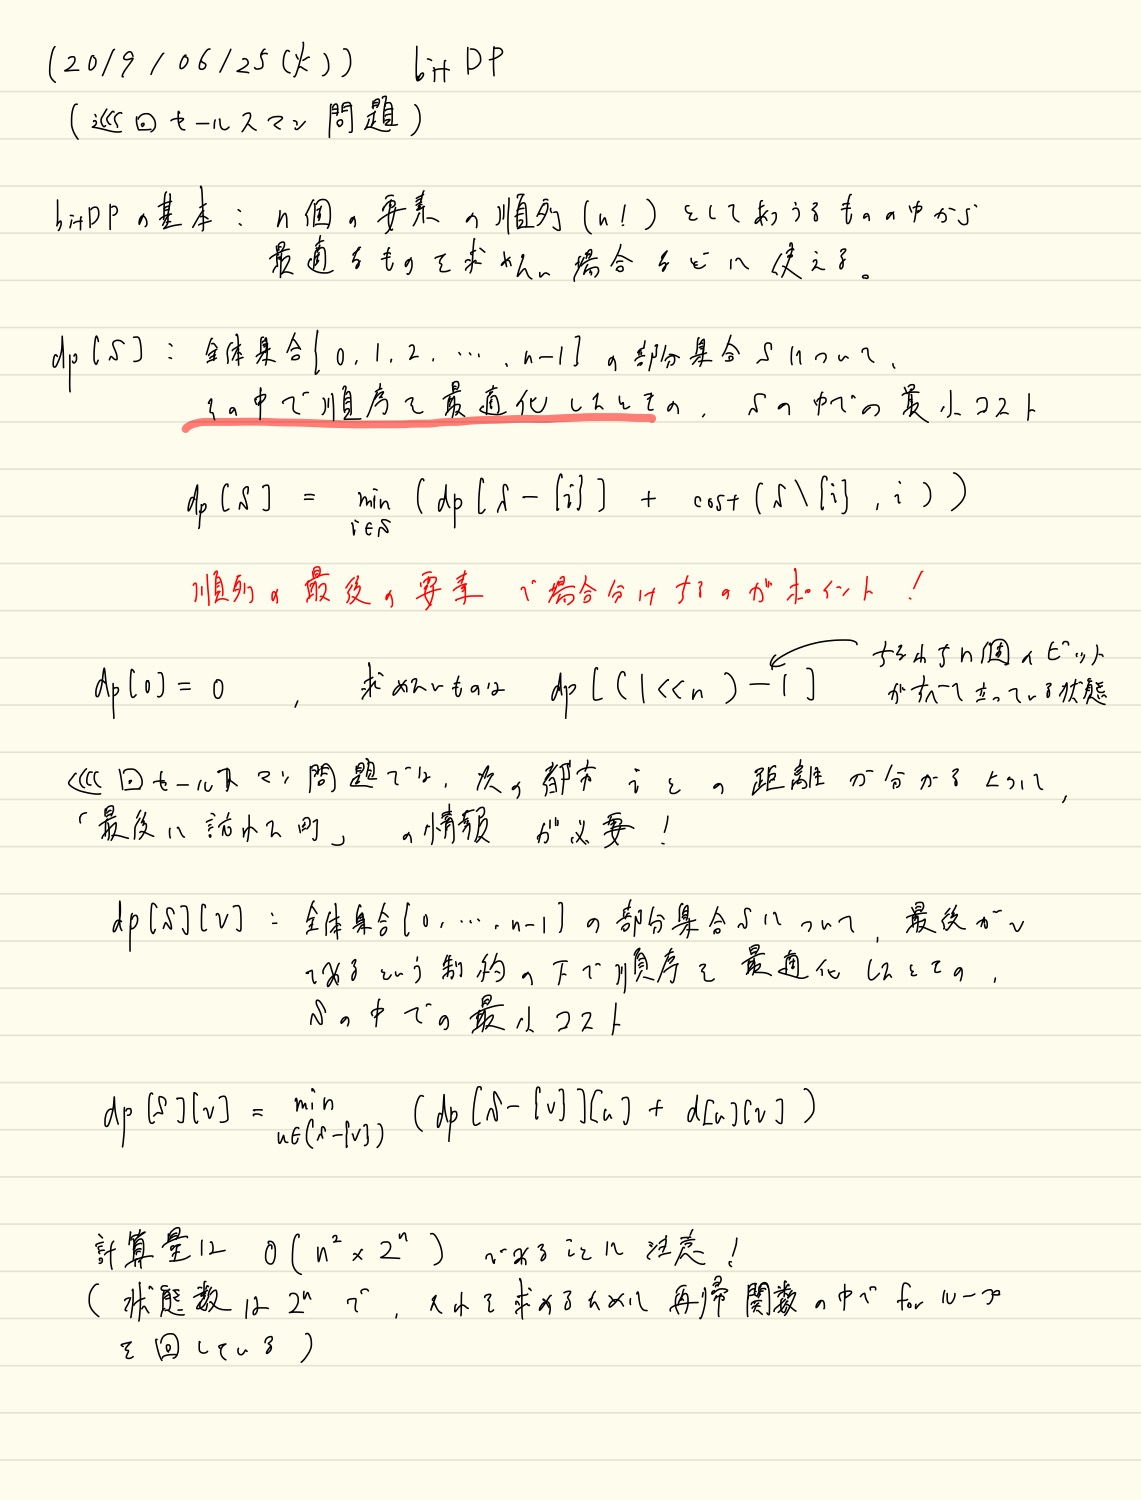 (2019/06/25(火)) bit DP
(巡回セールスマン問題)
bitDPの基本: n個の要素の順列(n!)としてありうるものの中から
最適なものを求めたい場合などに使える。
dp[S]: 全体集合{0, 1, 2, …, n-1}の部分集合Sについて、
その中で順序を最適化したときの、Sの中での最小コスト
dp[S] = min (dp[S-{i}] + cost(S\{i}, i))
i∈S
順列の最後の要素で場合分けするのがポイント!
すなわちn個のビット
dp[0]=0 , 求めたいものは dp[(1<<n)-1] がすべて立っている状態
巡回セールスマン問題では、次の都市iとの距離が分かるように、
「最後に訪れた町」の情報が必要!
dp[S][v]: 全体集合{0, …, n-1}の部分集合Sについて、最後がv
であるという制約の下で順序を最適化したときの、
Sの中での最小コスト
dp[S][v] = min (dp[S-{v}][u] + d[u][v])
u∈(S-{v})
計算量は O(n²×2ⁿ) であることに注意!
(状態数は2ⁿで、それを求めるために再帰関数の中でforループ
を回している)